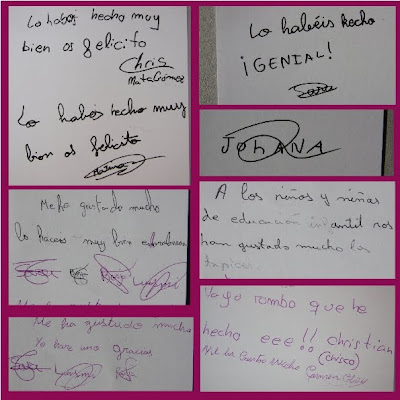 Lo habéis hecho muy
bien os felicito
Chris
Mata Gómez
Lo habéis hecho muy
bien os felicito
Me ha gustado mucho
lo haceis muy bien
Me ha gustado mucha
Yo hare uno gracias
Lo habéis hecho
¡GENIAL!
Sara
JOHANA
A los niños y niñas
de educación infantil nos
han gustado mucho los
tapices.
Vaya rombo que he
hecho eee!! christian
(chisco)
Me ha Gustado Mucho Carmen